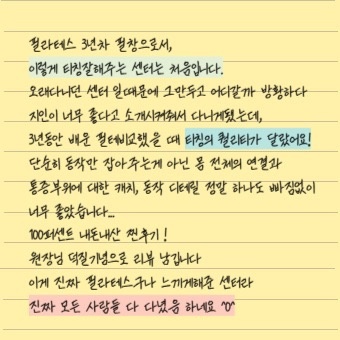 필라테스 3년차 필창으로서,
이렇게 티칭잘해주는 센터는 처음입니다.
오래다니던 센터 일때문에 그만두고 어디갈까 방황하다
지인이 너무 좋다고 소개시켜줘서 다니게됐는데,
3년동안 배운 필테비교했을 때 티칭의 퀄리티가 달랐어요!
단순히 동작만 잡아주는게 아닌 몸 전체의 연결과
통증부위에 대한 캐치, 동작 디테일 정말 하나도 빠짐없이
너무 좋았습니다...
100퍼센트 내돈내산 찐후기!
원장님 덕질기념으로 리뷰 남깁니다
이게 진짜 필라테스구나 느끼게해준 센터라
진짜 모든 사람들 다 다녔음 하네요 ^0^